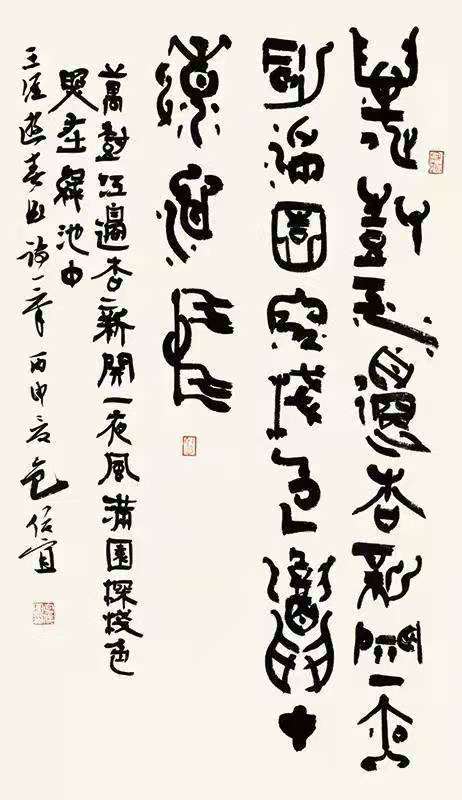 萬樹江邊杏新開一夜
風滿園深淺色照在
綠池中
萬樹江邊杏新開一夜風滿園深淺色
照在綠池中
王涯遊春曲詩一章丙申夞